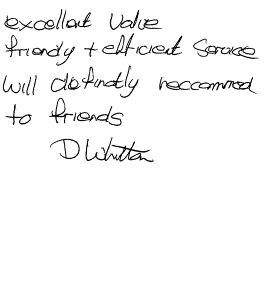 excellent value
friendy + efficient Service
will definatly reccommend
to friends
D Whitton